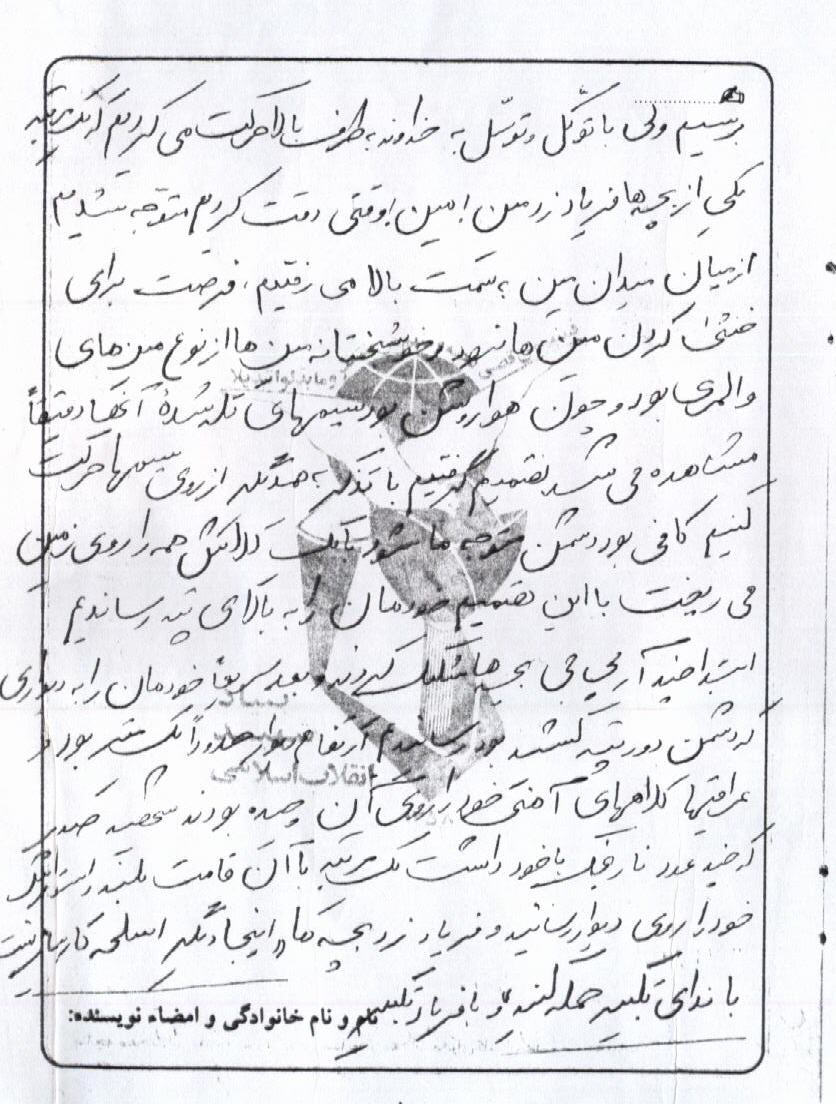 برسیم ولی با توکّل و توسّل به خداوند بطرف بالا حرکت می کردیم که یک مرتبه
یکی از بچه ها فریاد زد مین! مین! وقتی دقت کردم متوجه شدیم
از میان میدان مین به سمت بالا می رفتیم، فرصت برای
خنثی کردن مین ها نبود و خوشبختانه مین ها از نوع مین های
والمری بود و چون هوا روشن بود سیمهای تله شدۀ آنها دقیقاً
مشاهده می شد تصمیم گرفتیم با تذکر به همدیگر از روی سیمها حرکت
کنیم کافی بود دشمن متوجه ما شود با یک کلاش همه را روی زمین
می ریخت با این تصمیم خودمان را به بالای تپه رساندیم
ابتدا چند آرپی جی بچه ها شلیک کردند و بعد سریعاً خودمان را به دیواری
که دشمن دور تپه کشیده بود رساندیم ارتفاع دیوار حدوداً یک متر بود و
عراقیها کلاههای آهنی خود را روی آن چیده بودند شهید صدر
که چند عدد نارنجک با خود داشت یک مرتبه با آن قامت بلند و استوارش
خود را روی دیوار رسانید و فریاد زد بچه ها «اینجا دیگر اسلحه کارساز نیست
با ندای تکبیر حمله کنید» و با فریاد تکبیر
نام و نام خانوادگی و امضاء نویسنده:
انقلاب اسلامی